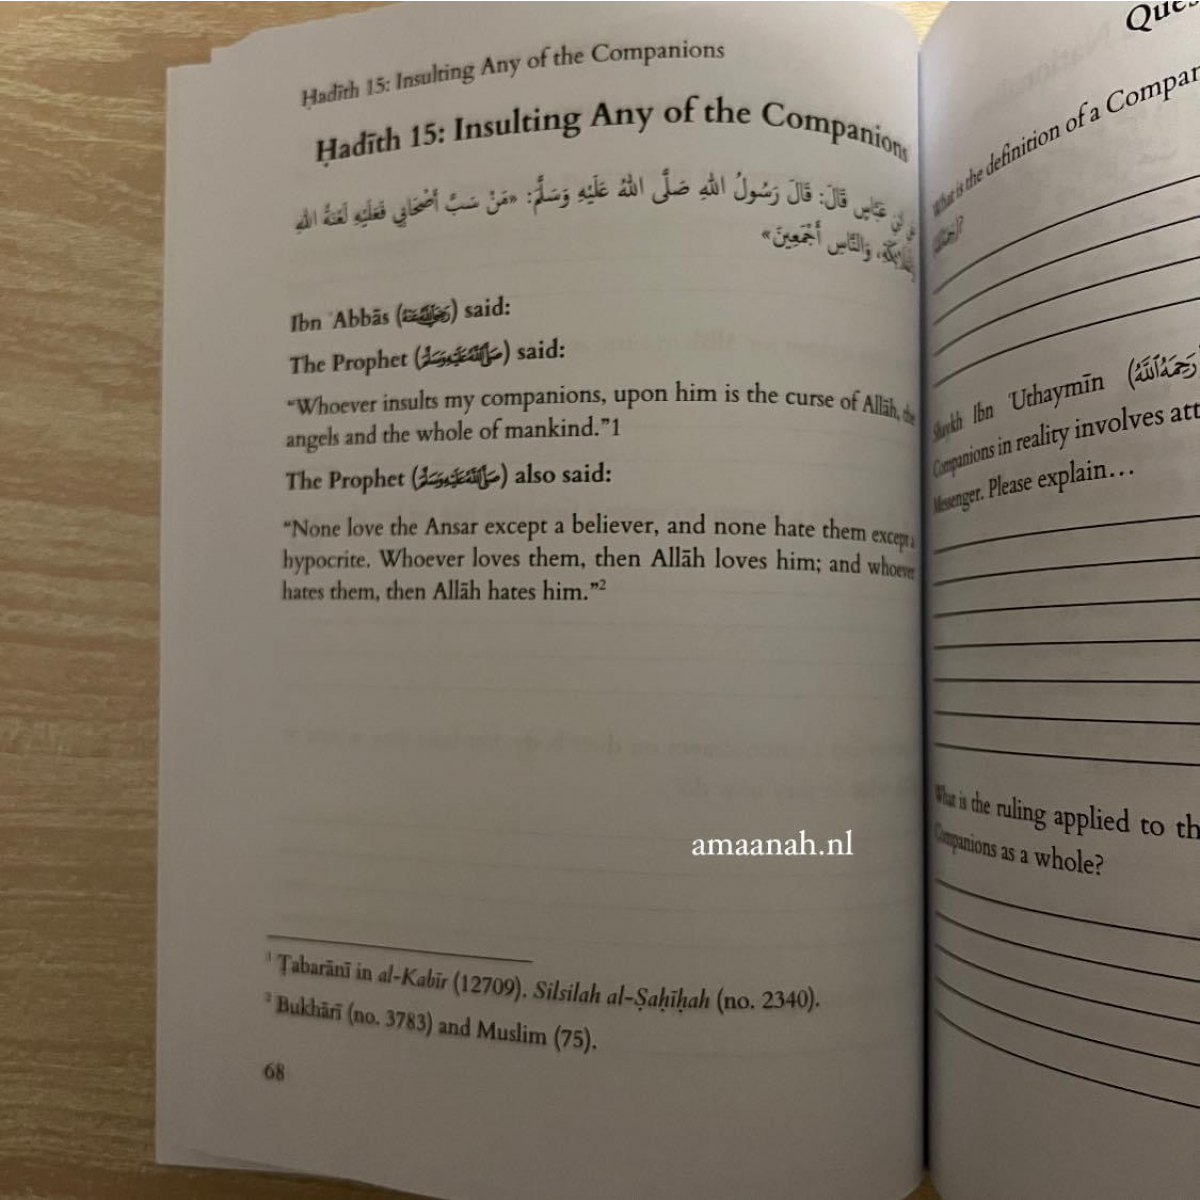 Ḥadīth 15: Insulting Any of the Companions
Ḥadīth 15: Insulting Any of the Companions
عَبَّاسٍ قَالَ: قَالَ رَسُولُ اللهِ صَلَّى اللهُ عَلَيْهِ وَسَلَّمَ: «مَنْ سَبَّ أَصْحَابِي فَعَلَيْهِ لَعْنَةُ اللهِ
وَالنَّاسِ أَجْمَعِينَ»
Ibn ʿAbbās (رَضِيَ اللَّهُ عَنْهُ) said:
The Prophet (صَلَّى اللَّهُ عَلَيْهِ وَسَلَّمَ) said:
“Whoever insults my companions, upon him is the curse of Allāh, the
angels and the whole of mankind.”1
The Prophet (صَلَّى اللَّهُ عَلَيْهِ وَسَلَّمَ) also said:
“None love the Ansar except a believer, and none hate them except a
hypocrite. Whoever loves them, then Allāh loves him; and whoever
hates them, then Allāh hates him.”2
amaanah.nl
1 Ṭabarānī in al-Kabīr (12709). Silsilah al-Ṣaḥīḥah (no. 2340).
2 Bukhārī (no. 3783) and Muslim (75).
68
Ques
What is the definition of a Compan
Shaykh Ibn ʿUthaymīn (رَحِمَهُ اللَّهُ
Companions in reality involves att
Messenger. Please explain…
What is the ruling applied to th
Companions as a whole?